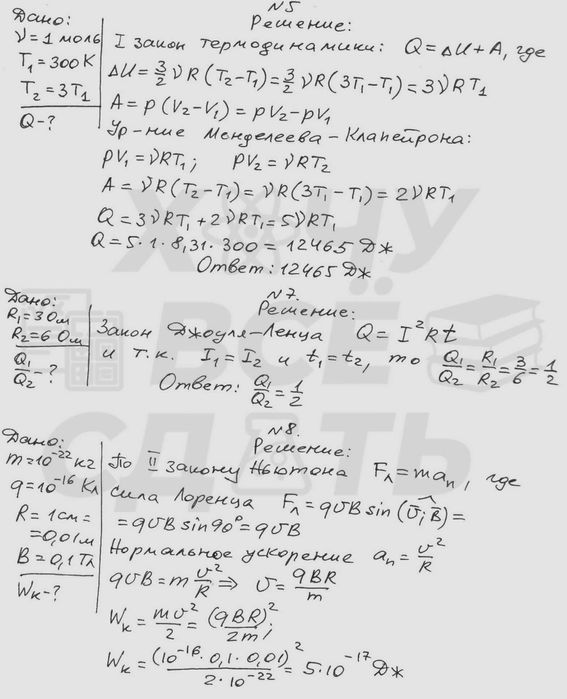 №5
Дано:
ν = 1 моль
T₁ = 300К
T₂ = 3T₁
Q - ?
Решение:
I закон термодинамики: Q = ΔU + A, где
ΔU = 3/2 νR(T₂-T₁) = 3/2 νR(3T₁-T₁) = 3νRT₁
A = p(V₂-V₁) = pV₂ - pV₁
Ур-ние Менделеева-Клапейрона:
pV₁ = νRT₁; pV₂ = νRT₂
A = νR(T₂-T₁) = νR(3T₁-T₁) = 2νRT₁
Q = 3νRT₁ + 2νRT₁ = 5νRT₁
Q = 5·1·8,31·300 = 12465 Дж
Ответ: 12465 Дж
№7.
Дано:
R₁ = 3 Ом
R₂ = 6 Ом
Q₁/Q₂ - ?
Решение:
Закон Джоуля-Ленца Q = I²Rt
и т.к. I₁ = I₂ и t₁ = t₂, то Q₁/Q₂ = R₁/R₂ = 3/6 = 1/2
Ответ: Q₁/Q₂ = 1/2
№8.
Дано:
m = 10⁻²² кг
q = 10⁻¹⁶ Кл
R = 1 см =
= 0,01 м
B = 0,1 Тл
Wк - ?
Решение:
По II закону Ньютона Fл = maₙ, где
сила Лоренца Fл = qυB sin(υ;B) =
= qυB sin 90° = qυB
Нормальное ускорение aₙ = υ²/R
qυB = m υ²/R ⇒ υ = qBR/m
Wк = mυ²/2 = (qBR)²/2m;
Wк = (10⁻¹⁶·0,1·0,01)²/2·10⁻²² = 5·10⁻¹⁷ Дж
ХОЧУ
ВСЁ
СДАТЬ